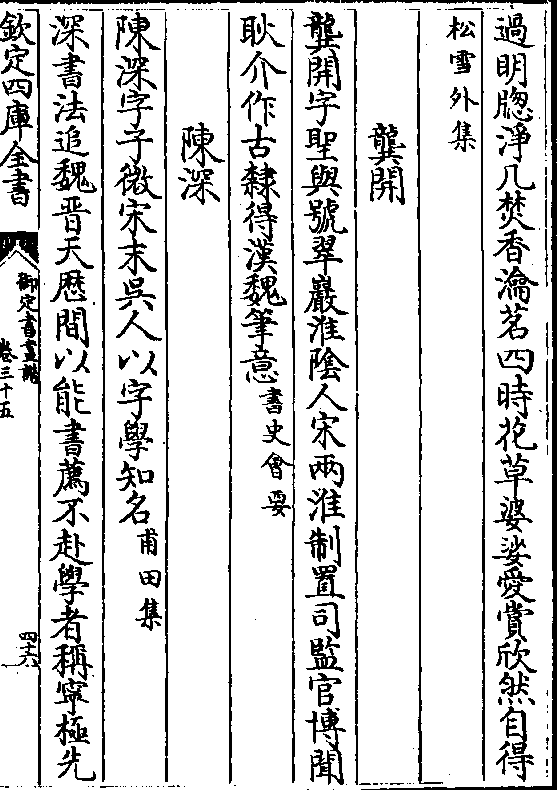 過明牕淨几焚香瀹茗四時花草婆娑愛賞欣然自得
松雪外集
龔開
龔開字聖與號翠巖淮隂人宋兩淮制置司監官博聞
耿介作古隸得漢魏筆意書史會要
陳深
陳深字子微宋末吳人以字學知名甫田集
深書法追魏晉天厯間以能書薦不赴學者稱寧極先
欽定四庫全書
御定書畫譜
卷三十五
四十六